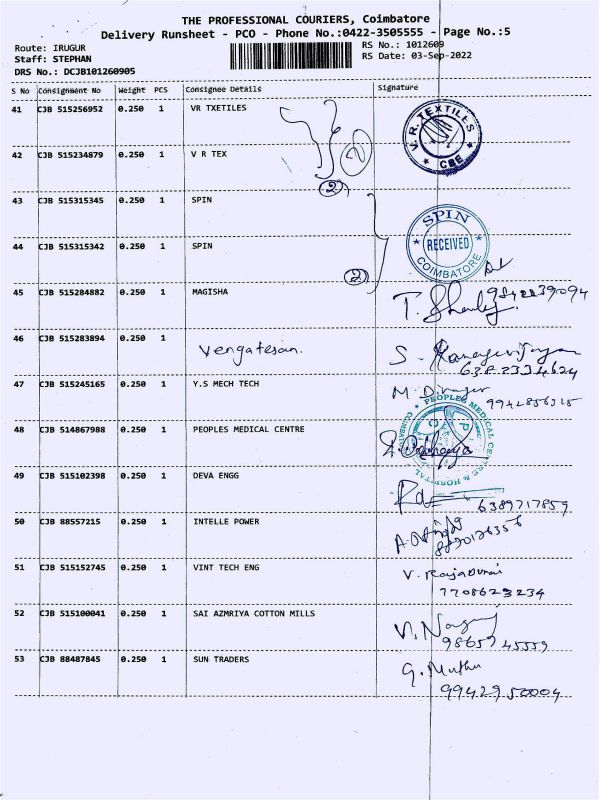 THE PROFESSIONAL COURIERS, Coimbatore
Delivery Runsheet - PCO - Phone No.:0422-3505555 - Page No.:5
Route: IRUGUR
RS No.: 1012609
Staff: STEPHAN
RS Date: 03-Sep-2022
DRS No.: DCJB101260905
S No Consignment No Weight PCS Consignee Details Signature
41 CJB 515256952 0.250 1 VR TXETILES
V.R. TEXTILES
CBE
2
42 CJB 515234879 0.250 1 V R TEX
2
43 CJB 515315345 0.250 1 SPIN
SPIN
RECEIVED
COIMBATORE
44 CJB 515315342 0.250 1 SPIN
2
45 CJB 515284882 0.250 1 MAGISHA
9842239094
46 CJB 515283894 0.250 1
Vengatesan.
47 CJB 515245165 0.250 1 Y.S MECH TECH
48 CJB 514867988 0.250 1 PEOPLES MEDICAL CENTRE
PEOPLES MEDICAL CENTRE & HOSPITAL
49 CJB 515102398 0.250 1 DEVA ENGG
6389717859
50 CJB 88557215 0.250 1 INTELLE POWER
51 CJB 515152745 0.250 1 VINT TECH ENG
V. Rajadurai
7708623234
52 CJB 515100041 0.250 1 SAI AZMRIYA COTTON MILLS
9865945559
53 CJB 88487845 0.250 1 SUN TRADERS
G. Muthu
9942950004